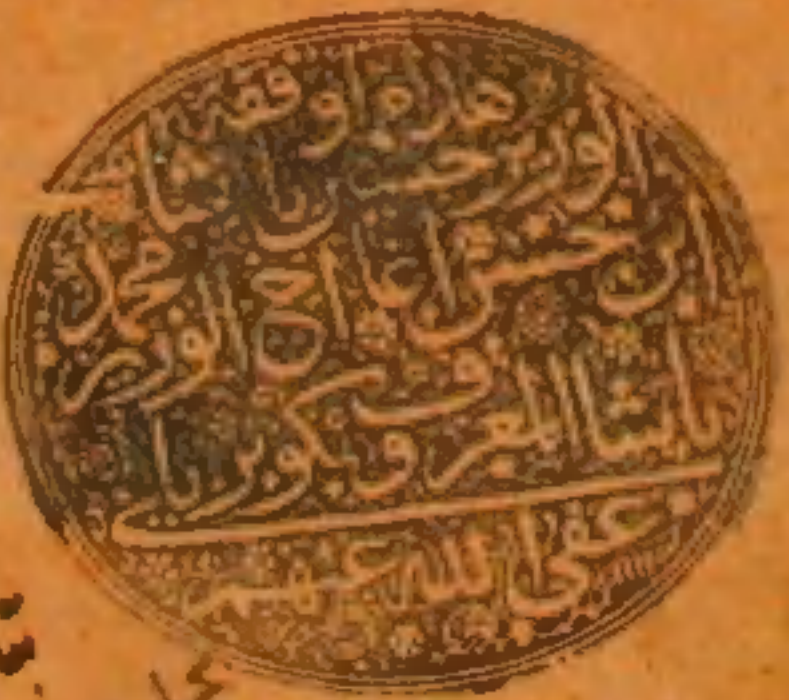 هذا ما اوقفه
الوزير حسين باشا
ابن حسن اغا اخ الوزير محمد
باشا المعروف بكوپريلى
عفى الله عنهم